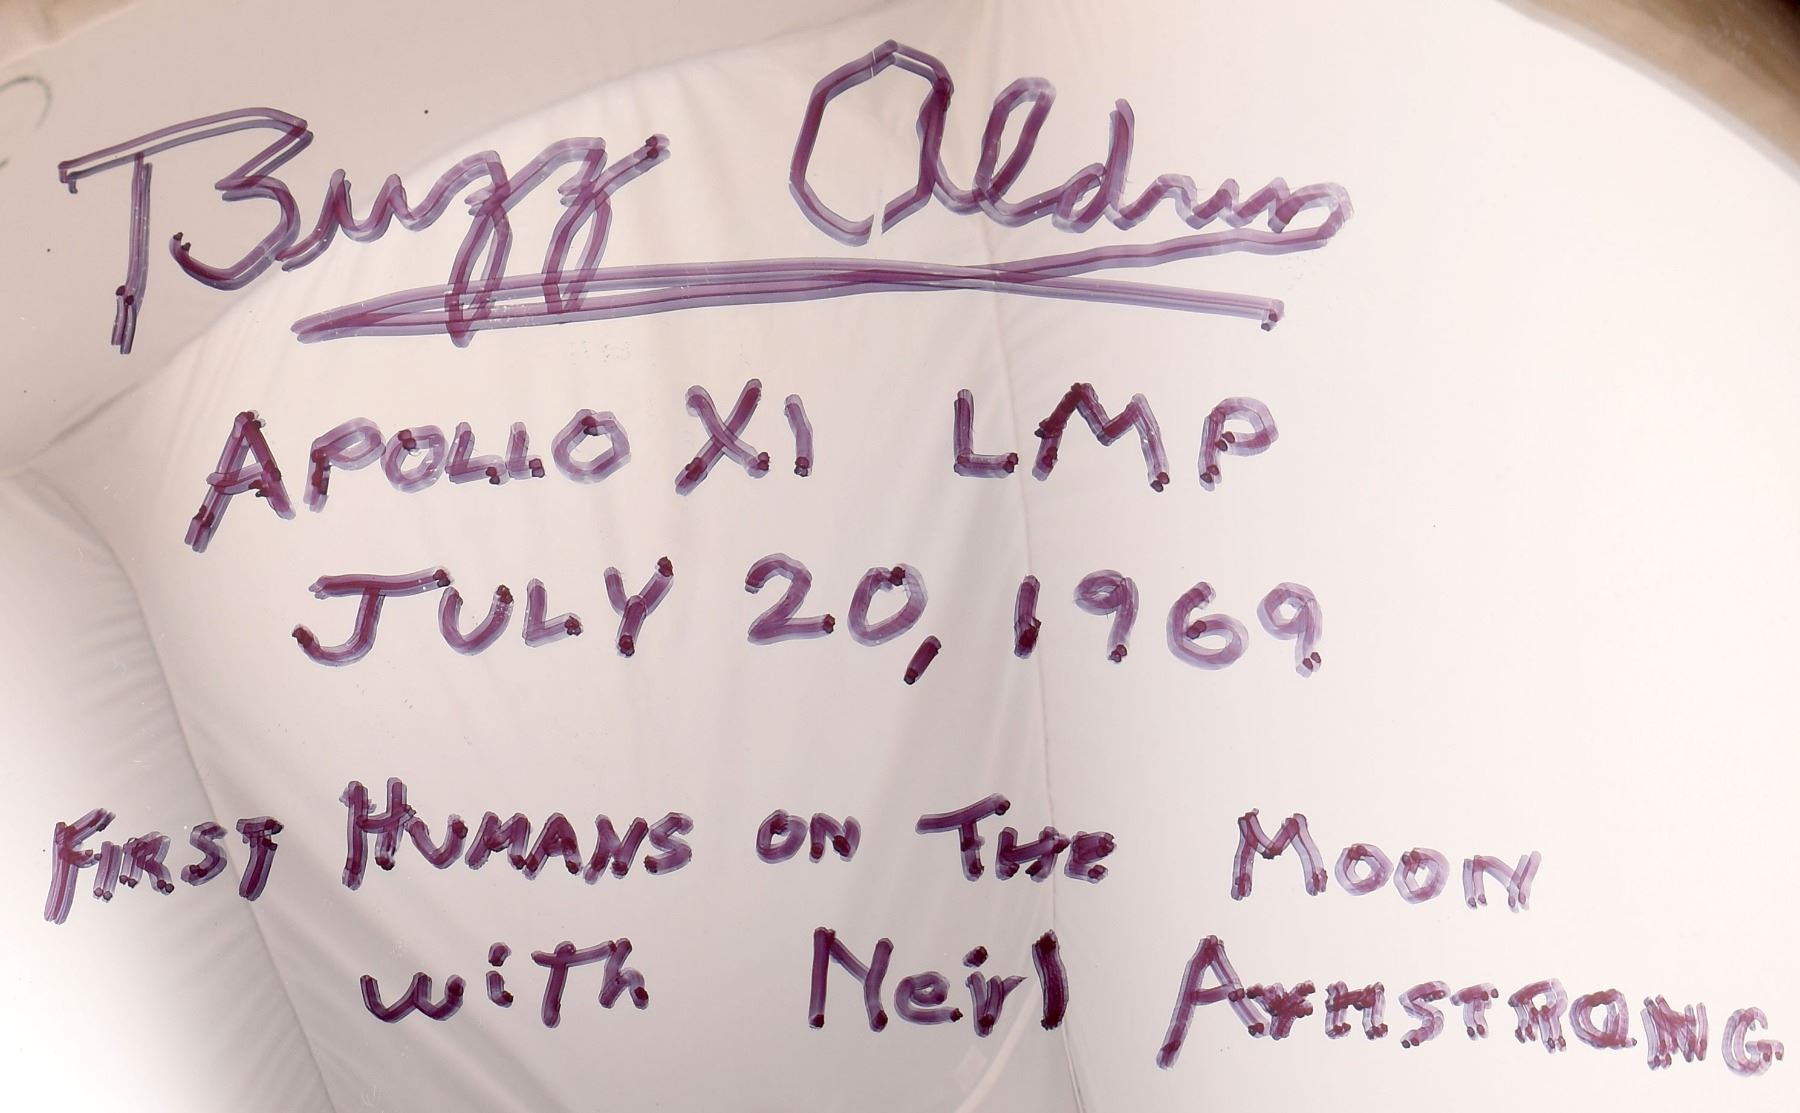 Buzz Aldrin
APOLLO XI LMP
JULY 20, 1969
FIRST HUMANS ON THE MOON
with Neil ARMSTRONG